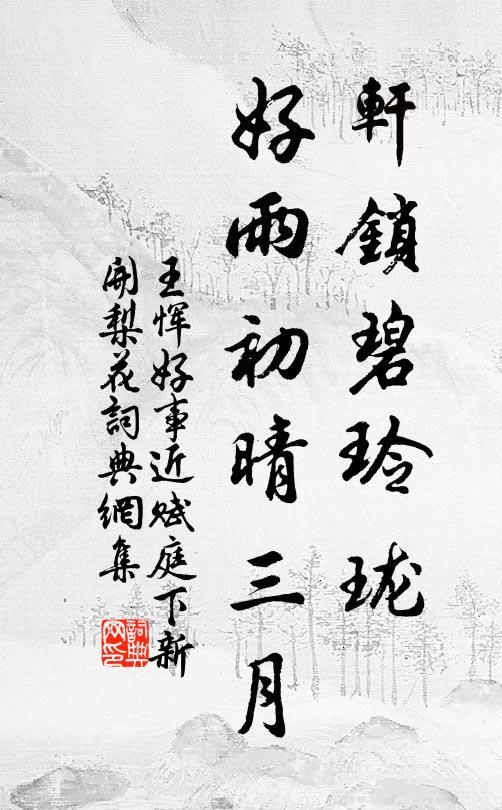 軒鎖碧玲瓏
好雨初晴三月
王惲好事近賦庭下新
開梨花詞典網集
詞典
网印